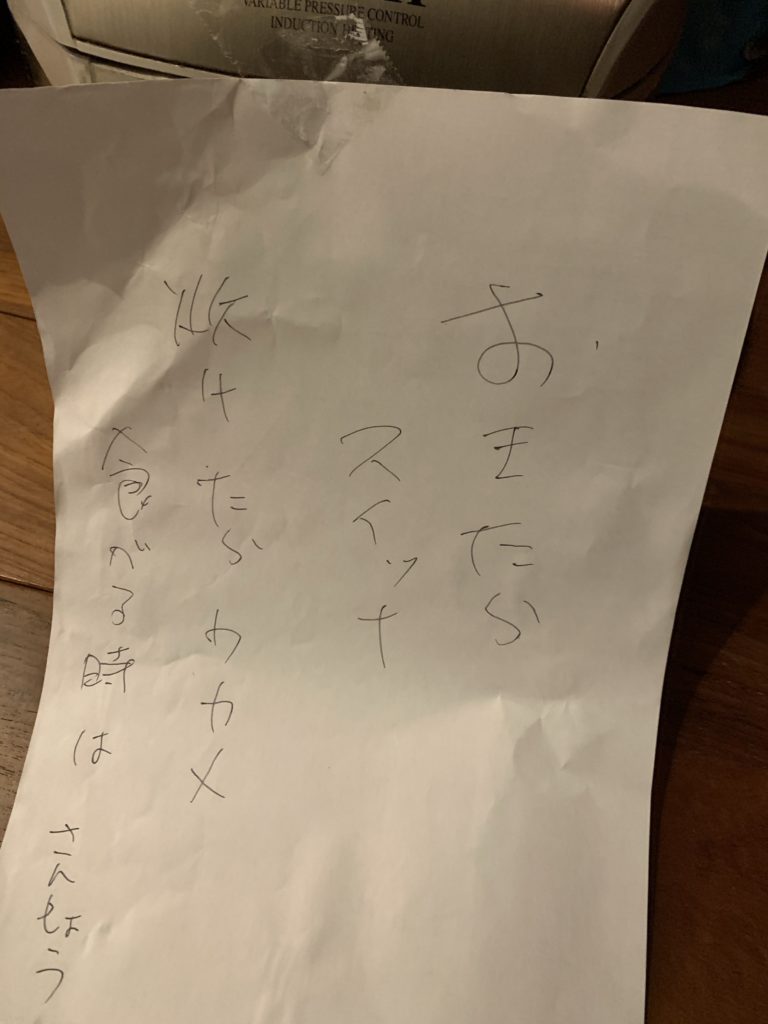 VARIABLE PRESSURE CONTROL
INDUCTION HEATING
おきたら
スイッチ
炊けたら ワカメ
食がる時は さんちょう